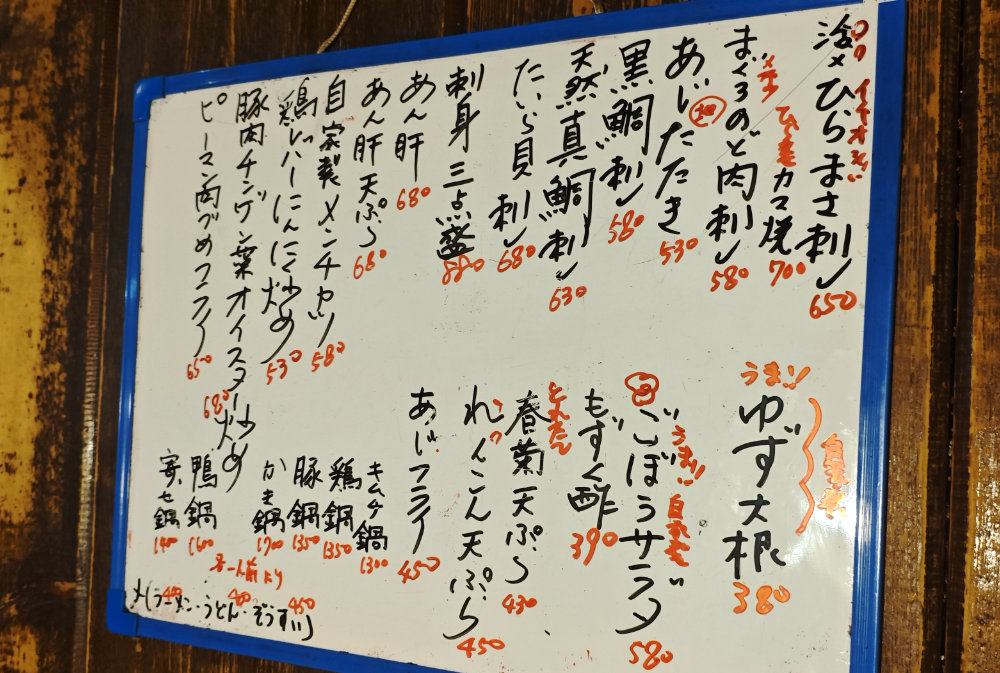 活〆ひらまさ刺 650
カマ焼 700
まぐろのど肉刺 580
あじたたき 530
黒鯛刺 580
天然真鯛刺 630
たいら貝刺 680
刺身三点盛 880
あん肝 680
あん肝天ぷら 680
自家製メンチカツ 580
鶏レバーにんにく炒め 530
豚肉チンゲン菜オイスター炒め 680
ピーマン肉づめフライ 650
うまい!
ゆず大根 380
自家製
ごぼうサラダ 580
うまい!
自家製
もずく酢 390
春菊天ぷら 430
れんこん天ぷら 450
あじフライ 450
キムチ鍋 1300
鶏鍋 1350
豚鍋 1350
かき鍋 1700
鴨鍋 1600
寄せ鍋 1400
一人前より
〆(ラーメン・うどん・ぞうすい)
400 400 450